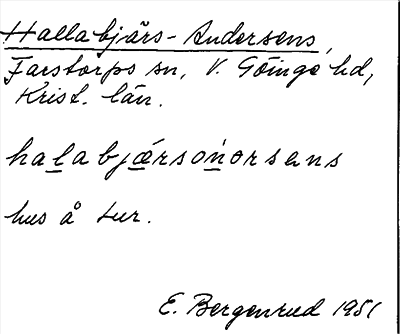 Hallabjärs-Andersens,
Farstorps sn, V. Göinge hd,
Krist. län.
halabjǽrsońorsens
hus å tur.
E. Bergenrud 1951